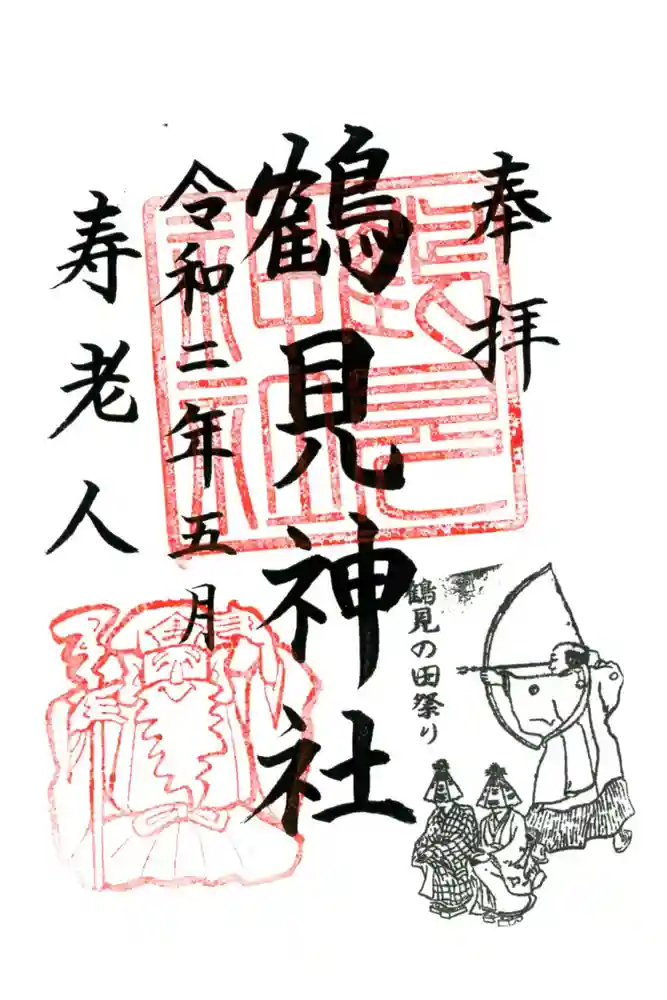 奉拝
鶴見神社
令和二年五月
寿老人
鶴見の田祭り
鶴見
神社